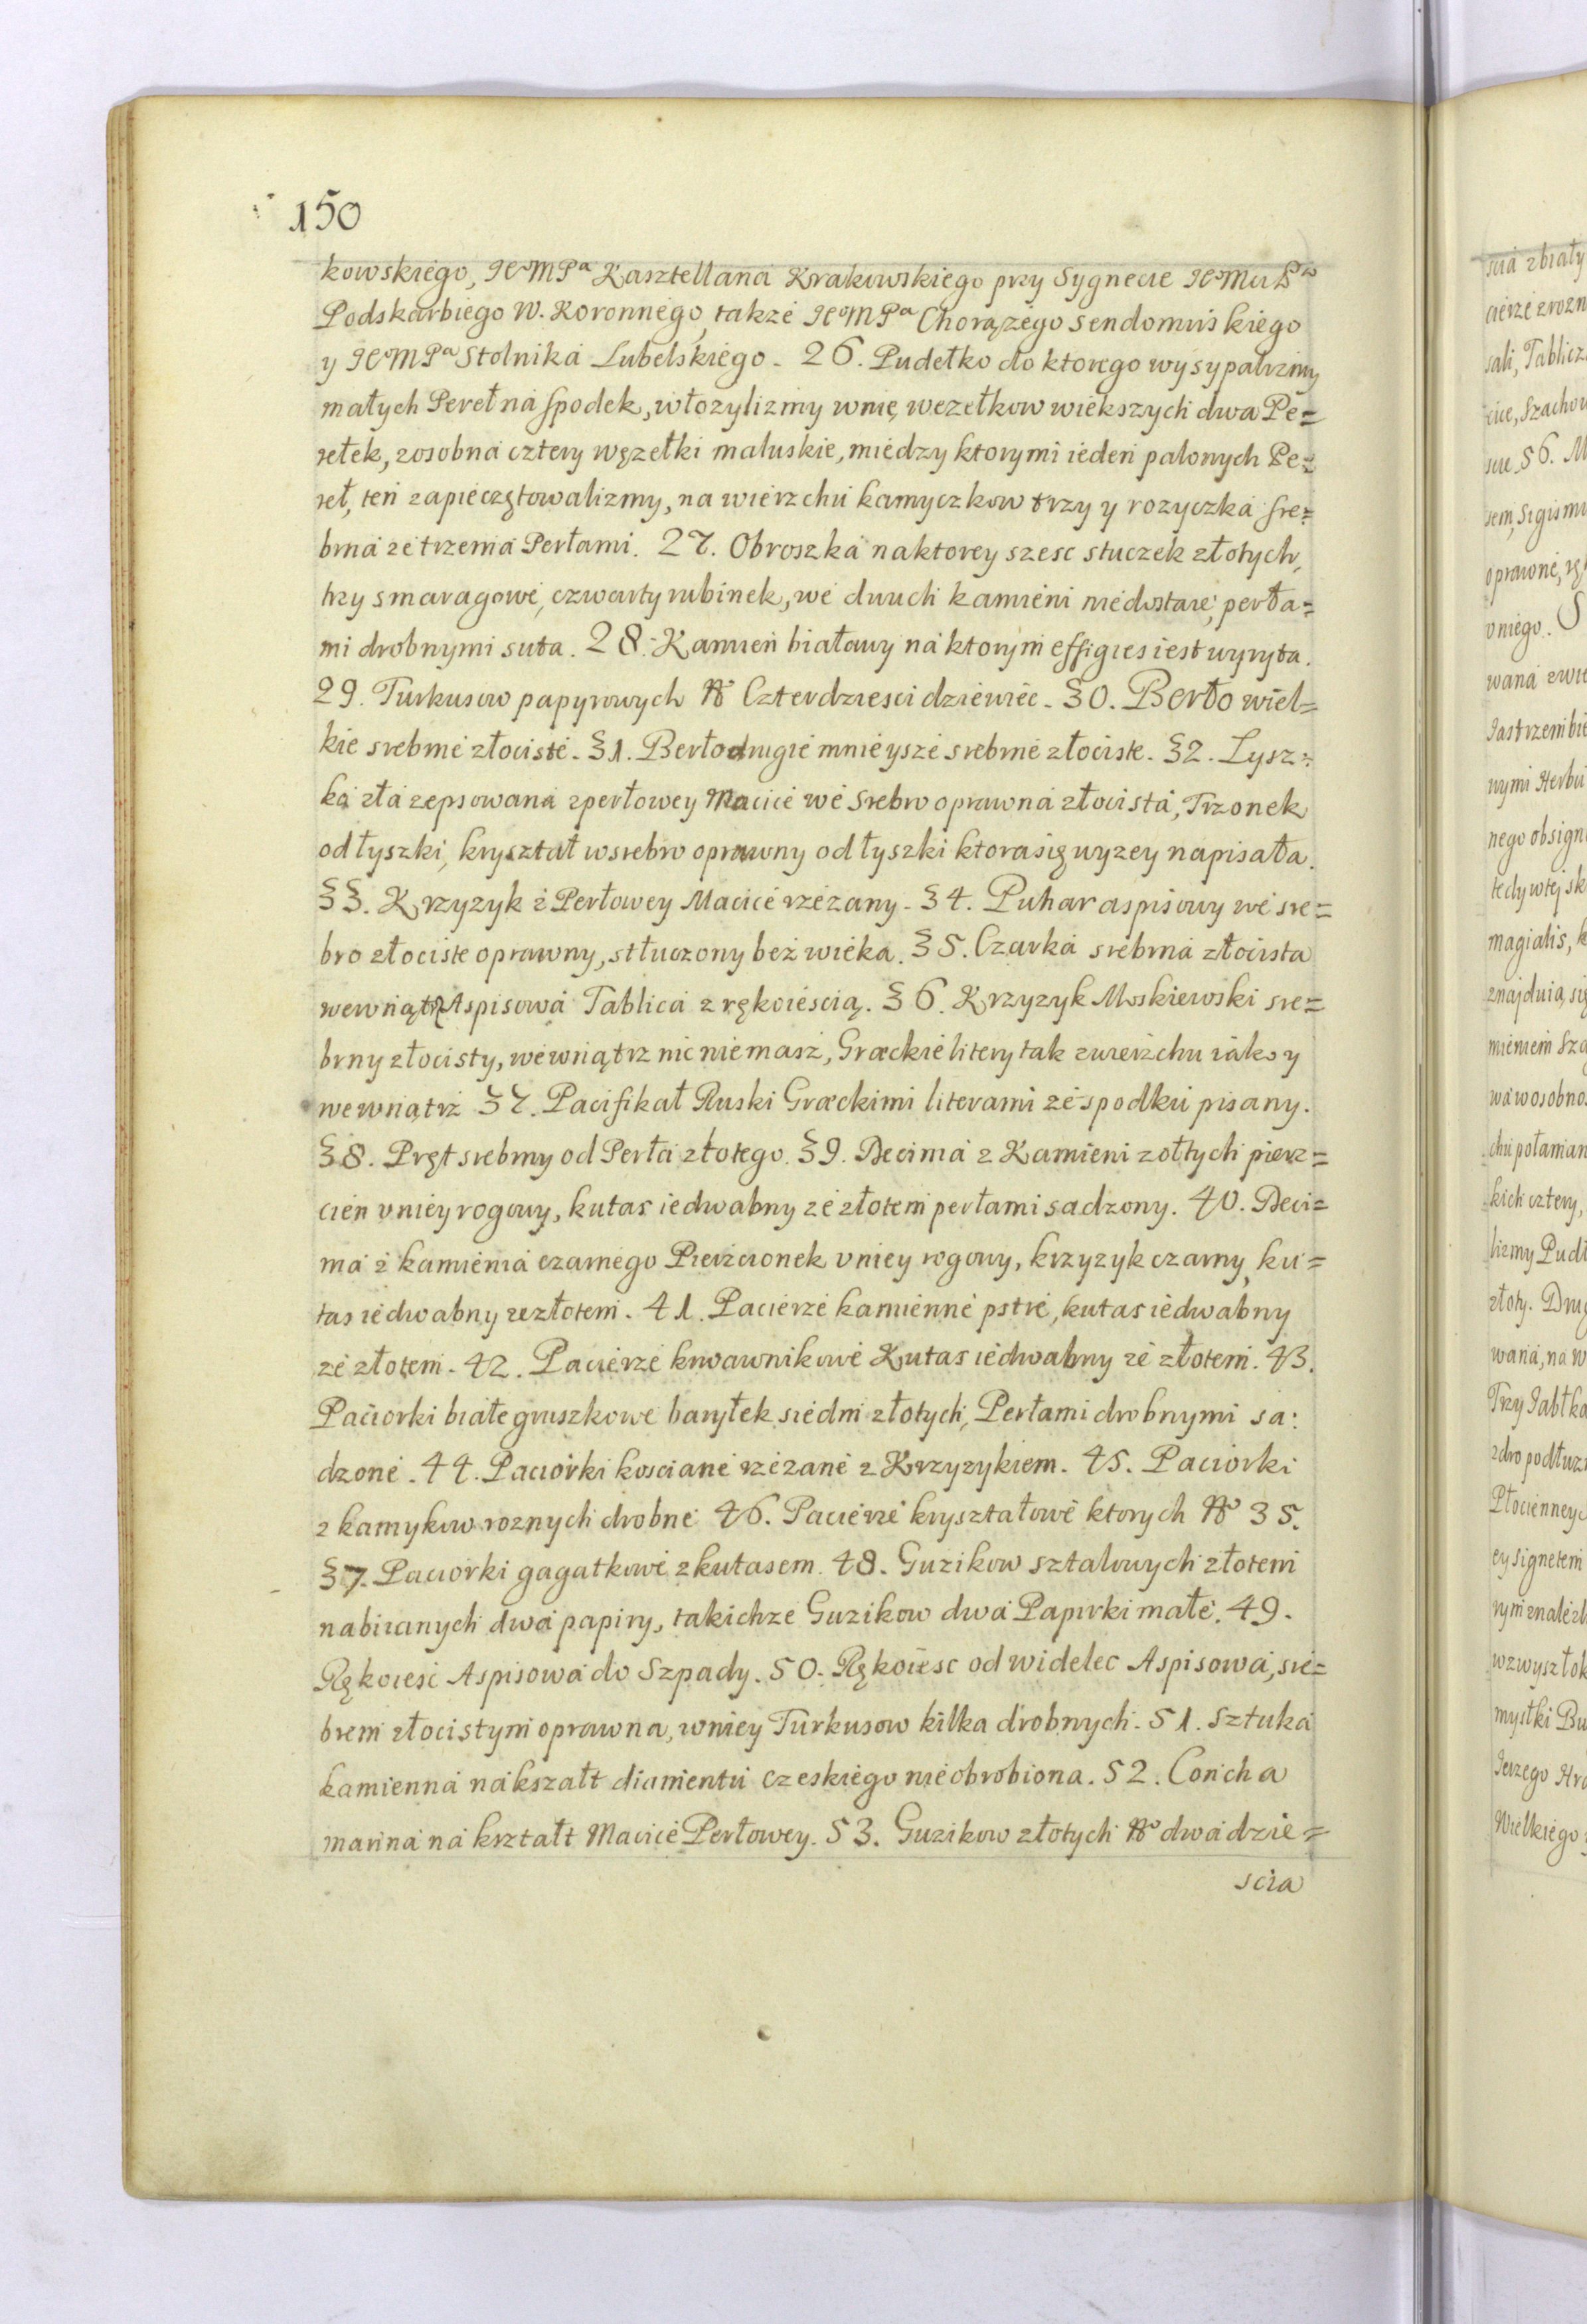 150
kowskiego, JeoMPa Kasztellana Krakowskiego przy Sygnecie JeoMci Pa
Podskarbiego W. Koronnego, takze JeoMPa Chorązego Sendomirskiego
y JeoMPa Stolnika Lubelskiego. 26. Pudełko do ktorego wysypalizmy
małych Pereł na spodek, włozylizmy w nie wezełkow wiekszych dwa Pe=
rełek, zosobna cztery węzełki maluskie, miedzy ktorymi ieden palonych Pe=
reł, ten zapieczętowalizmy, na wierzchu kamyczkow trzy y rozyczka sre=
brna ze trzema Perłami. 27. Obroszka na ktorey szesc stuczek złotych,
trzy smaragowe, czwarty rubinek, we dwuch kamieni niedostaie, perła=
mi drobnymi suta. 28. Kamien białawy na ktorym effigies iest wyryta.
29. Turkusow papyrowych No Czterdziesci dziewiec. 30. Berło wiel=
kie srebrne złociste. 31. Berło drugie mnieysze srebrne złociste. 32. Lysz=
ka zła zepsowana z perłowey Macice we srebro oprawna złocista, Trzonek
od łyszki, kryształ w srebro oprawny od łyszki ktora się wyzey napisała.
33. Krzyzyk z Perłowey Macice rzezany. 34. Puhar aspisowy we sre=
bro złociste oprawny, stłuczony bez wieka. 35. Czarka srebrna złocista
wewnątrz Aspisowa Tablica z rękoiescią. 36. Krzyzyk Moskiewski sre=
brny złocisty, wewnątrz nic niemasz, Græckie litery tak zwierzchu iako y
wewnątrz 37. Pacifikał Ruski Græckimi literami ze spodku pisany.
38. Pręt srebrny od Perła złotego. 39. Decima z Kamieni zołtych pierz=
cien v niey rogowy, kutas iedwabny ze złotem perłami sadzony. 40. Deci=
ma z kamienia czarnego Pierzcionek v niey rogowy, krzyzyk czarny, ku=
tas iedwabny ze złotem. 41. Pacierze kamienne pstre, kutas iedwabny
ze złotem. 42. Pacierze krwawnikowe Kutas iedwabny ze złotem. 43.
Paciorki białe gruszkowe baryłek siedm złotych, Perłami drobnymi sa:
dzone. 44. Paciorki kosciane rzezane z Krzyzykiem. 45. Paciorki
z kamykow roznych drobne 46. Pacierze kryształowe ktorych No 35.
37. Paciorki gagatkowe z kutasem. 48. Guzikow sztalowych złotem
nabiianych dwa papiry, takichze Guzikow dwa Papirki małe. 49.
Rękoiesc Aspisowa do Szpady. 50. Rękoiesc od widelec Aspisowa, sre=
brem złocistym oprawna, w niey Turkusow kilka drobnych. 51. Sztuka
kamienna na kszałt diamentu czeskiego nieobrobiona. 52. Concha
marina na krztałt Macice Perłowey. 53. Guzikow złotych No dwadzie=
scia